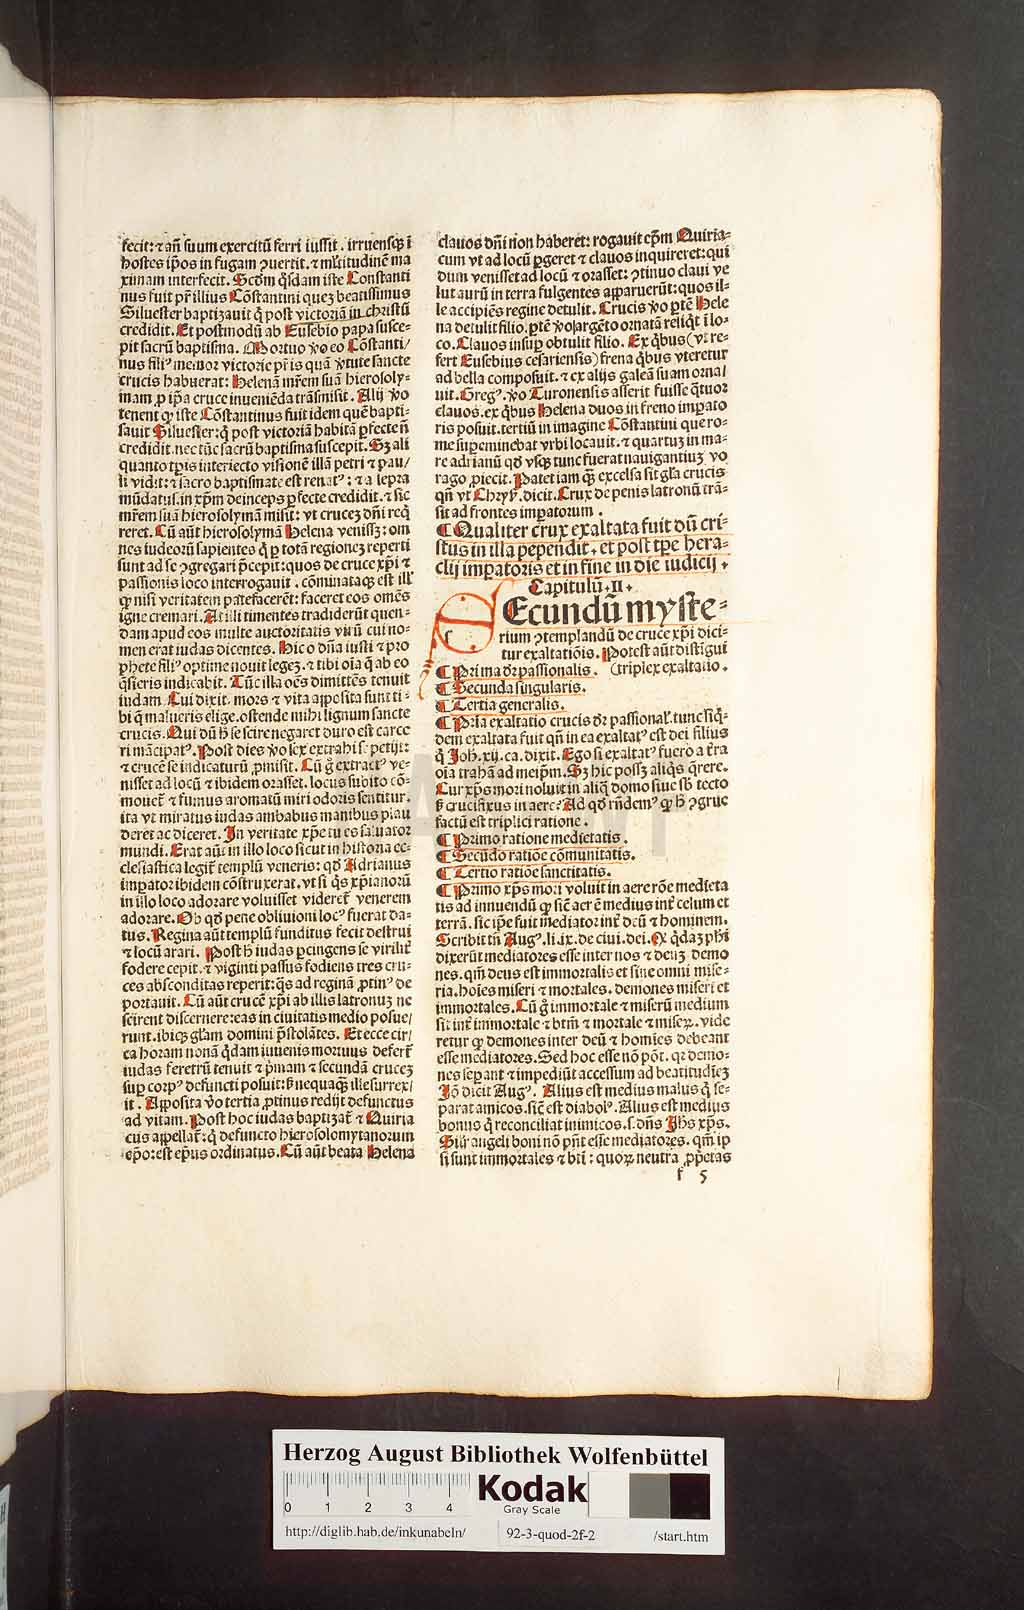 fecit: ⁊ añ suum exercitũ ferri iussit. irruensq̃ ĩ
hostes ip̃os in fugam ꝯuertit. ⁊ mĺtitudinẽ ma
ximam interfecit. Scd̃m q̃sdam iste Constanti
nus fuit pr̃ illius Cõstantini quez beatissimus
Siluester baptizauit q̃ post victoriã in christũ
credidit. Et postmodũ ab Eusebio papa susce-
pit sacrũ baptisma. Mortuo v̊o eo Cõstanti/
nus filiꝰ memor victorie pr̃is quã v̓tute sancte
crucis habuerat: Helenã mr̃em suã hierosoly-
mam ꝓ ip̃a cruce inueniẽda trãsmisit. Alij v̊o
tenent ꝙ iste Cõstantinus fuit idem quẽ bapti-
sauit Siluester: q̃ post victoriã habitã ꝑfecte ñ
credidit. nec tũc sacrũ baptisma suscepit. Sꝫ ali
quanto tꝑis interiecto visionẽ illã petri ⁊ pau/
li vidit: ⁊ sacro baptismate est renatꝰ: ⁊ a lepra
mũdatus. in xp̃m deinceps ꝑfecte credidit. ⁊ sic
mr̃em suã hierosolymã misit: vt crucez dñi req̃
reret. Cũ aũt hierosolymã Helena venissꝫ: om
nes iudeorũ sapientes q̃ ꝑ totã regionez reperti
sunt ad se ꝯgregari p̃cepit: quos de cruce xp̃i ⁊
passionis loco interrogauit. cõminataqꝫ est ill̓
ꝙ nisi veritatem patefacerẽt: faceret eos omẽs
igne cremari. At illi timentes tradiderũt quen-
dam apud eos multe auctoritatis virũ cui no-
men erat iudas dicentes. Hic o dñã iusti ⁊ pro
phete filiꝰ optime nouit legez. ⁊ tibi oĩa q̃ ab eo
q̃sieris indicabit. Tũc illa oẽs dimittẽs tenuit
iudam. Cui dixit. mors ⁊ vita apposita sunt ti-
bi q̃ malueris elige. ostende mihi lignum sancte
crucis. Qui dũ h̓ se scire negaret duro est carce
ri mãcipatꝰ. Post dies v̊o sex extrahi se petijt:
⁊ crucẽ se indicaturũ ꝓmisit. Cũ g̊ extractꝰ ve-
nisset ad locũ ⁊ ibidem orasset. locus subito cõ-
mouet̃ ⁊ fumus aromatũ miri odoris sentitur.
ita vt miratus iudas ambabus manibus plau
deret ac diceret. In veritate xp̃e tu es saluator
mundi. Erat aũt in illo loco sicut in historia ec-
clesiastica legit̃ templũ veneris: qd̓ Adrianus
imꝑator ibidem cõstruxerat. vt si q̃s xp̃ianorũ
in illo loco adorare voluisset videret̃ venerem
adorare. Ob qd̓ pene obliuioni locꝰ fuerat da-
tus. Regina aũt templũ funditus fecit destrui
⁊ locũ arari. Post h̓ iudas p̃cingens se virilit̃
fodere cepit. ⁊ viginti passus fodiens tres cru-
ces absconditas reperit: q̃s ad reginã ꝓtinꝰ de
portauit. Cũ aũt crucẽ xp̃i ab illis latronuz ne
scirent discernere: eas in ciuitatis medio posue/
runt. ibiqꝫ gl̃am domini p̃stolãtes. Et ecce cir/
ca horam nonã q̃dam iuuenis mortuus defert̃
iudas feretrũ tenuit ⁊ p̃mam ⁊ secundã crucez
suꝑ corpꝰ defuncti posuit: sꝫ nequaqꝫ ille surrex/
it. Apposita v̊o tertia ꝓtinus redijt defunctus
ad vitam. Post hoc iudas baptizat̃ ⁊ Quiria
cus appellat̃: q̃ defuncto hierosolomytanorum
ep̃o: est ep̃us ordinatus. Cũ aũt beata Helena
clauos dñi non haberet: rogauit ep̃m Quiria-
cum vt ad locũ ꝑgeret ⁊ clauos inquireret: qui
dum venisset ad locũ ⁊ orasset: ꝯtinuo claui ve
lut aurũ in terra fulgentes apparuerũt: quos il-
le accipiẽs regine detulit. Crucis v̊o ꝑtẽ Hele
na detulit filio. ꝑtẽ v̊o argẽto ornatã reliq̃t ĩ lo-
co. Clauos insuꝑ obtulit filio. Ex q̃bus (vt re-
fert Eusebius cesariensis) frena q̃bus vteretur
ad bella composuit. ⁊ ex alijs galeã suam orna/
uit. Gregꝰ. v̊o Turonensis asserit fuisse q̃tuor
clauos. ex q̃bus Helena duos in freno imꝑato
ris posuit. tertiũ in imagine Cõstantini que ro-
me suꝑeminebat vrbi locauit. ⁊ quartuz in ma-
re adrianũ qd̓ vsqꝫ tunc fuerat nauigantiuz vo
rago ꝓiecit. Patet iam qꝫ excelsa sit gl̃a crucis
qñ vt Chryſ. dicit. Crux de penis latronũ trã-
sit ad frontes imꝑatorum.
¶ Qualiter crux exaltata fuit dũ cri-
stus in illa pependit. et post tꝑe hera-
clij imꝑatoris et in fine in die iudicij.
Capitulũ. II.
SEcundũ myste-
rium ꝯtemplandũ de cruce xp̃i dici-
tur exaltatiõis. Potest aũt distĩgui
¶ Prima dr̃ passionalis. (triplex exaltatio.
¶ Secunda singularis.
¶ Tertia generalis.
¶ Pria exaltatio crucis dr̃ passional̓. tunc siq̃-
dem exaltata fuit qñ in ea exaltatꝰ est dei filius
q̃ Joh̃. xij. ca. dixit. Ego si exaltatꝰ fuero a t̃ra
oĩa trahã ad meip̃m. Sꝫ hic possꝫ aliq̃s q̃rere.
Cur xp̃s mori noluit in aliq̃ domo siue sb̓ tecto
sꝫ crucifixus in aere? Ad qd̓ rñdemꝰ ꝙ h̓ ꝯgrue
factũ est triplici ratione.
¶ Primo ratione medietatis.
¶ Secũdo ratiõe cõmunitatis.
¶ Tertio ratiõe sanctitatis.
¶ Primo xp̃s mori voluit in aere rõe medieta
tis ad innuendũ ꝙ sic̃ aer ẽ medius int̃ celum et
terrã. sic ip̃e fuit mediator int̃ deũ ⁊ hominem.
Scribit tñ Augꝰ. li. ix. de ciui. dei. Q̃ q̃dã phĩ
dixerũt mediatores esse inter nos ⁊ deuz demo
nes. qm̃ deus est immortalis et sine omni mise-
ria. hoĩes miseri ⁊ mortales. demones miseri et
immortales. Cũ g̊ immortale ⁊ miserũ medium
sit int̃ immortale ⁊ btm̃ ⁊ mortale ⁊ miseꝝ. vide
retur ꝙ demones inter deũ ⁊ homĩes debeant
esse mediatores. Sed hoc esse nõ põt. qꝛ demo-
nes seꝑant ⁊ impediũt accessum ad beatitudiez
Jõ dicit Augꝰ. Alius est medius malus q̃ se-
parat amicos. sic̃ est diabolꝰ. Alius est medius
bonus q̃ reconciliat inimicos. s. dñs Jh̓s xp̃s.
Silr̃ angeli boni nõ pñt esse mediatores. qm̃ ip
si sunt immortales ⁊ bt̃i: quoꝝ neutra ꝓp̃etas
f 5
Herzog August Bibliothek Wolfenbüttel
0 1 2 3 4
Kodak
Gray Scale
http://diglib.hab.de/inkunabeln/ 92-3-quod-2f-2 /start.htm